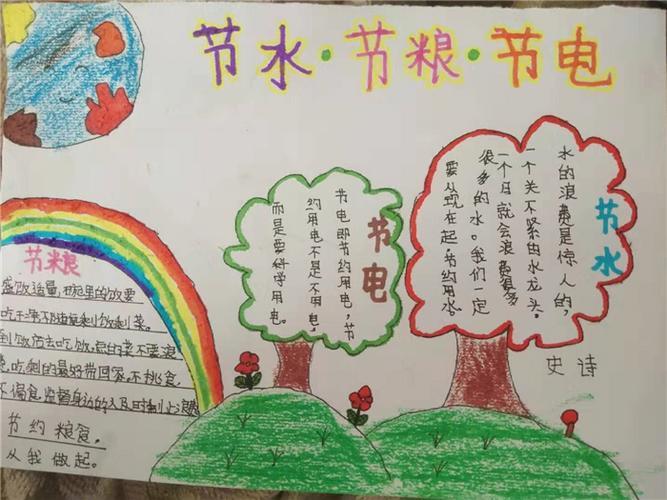 节水·节粮·节电
节水
水的浪费是惊人的,
一个关不紧的水龙头。
一个月就会浪费很多
很多的水。我们一定
要从现在起,节约用水。
节电
节电即节约用电,节
约用电不是不用电,
而是要科学用电。
节粮
盛饭适量,碗里的饭要
吃干净不随便剩饭剩菜。
到饭店去吃饭,
不要浪
费,吃剩的最好带回家,不挑食
不偏食,监督身边的人及时制止浪费
节约粮食,
从我做起。
史诗